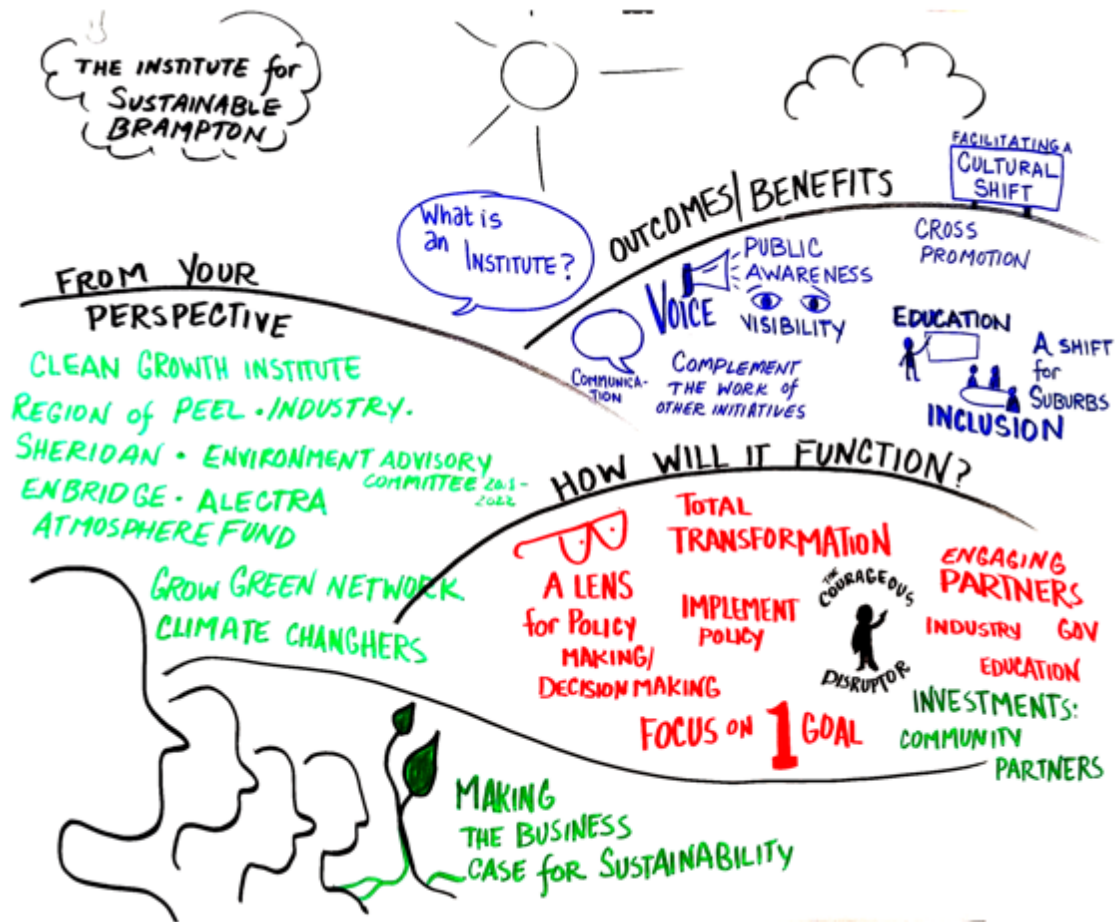 THE INSTITUTE for
SUSTAINABLE
BRAMPTON
What is
an INSTITUTE?
FROM YOUR
PERSPECTIVE
CLEAN GROWTH INSTITUTE
REGION of PEEL · INDUSTRY.
SHERIDAN · ENVIRONMENT ADVISORY
COMMITTEE
2022
ENBRIDGE · ALECTRA
ATMOSPHERE FUND
GROW GREEN NETWORK
CLIMATE CHANGHERS
OUTCOMES/BENEFITS
FACILITATING A
CULTURAL
SHIFT
CROSS
PROMOTION
VOICE
PUBLIC
AWARENESS
VISIBILITY
COMMUNICA-
TION
COMPLEMENT
THE WORK OF
OTHER INITIATIVES
EDUCATION
INCLUSION
A SHIFT
for
SUBURBS
HOW WILL IT FUNCTION?
A LENS
for POLICY
MAKING/
DECISION MAKING
TOTAL
TRANSFORMATION
IMPLEMENT
POLICY
THE
COURAGEOUS
DISRUPTOR
ENGAGING
PARTNERS
INDUSTRY GOV
EDUCATION
FOCUS ON 1 GOAL
INVESTMENTS:
COMMUNITY
PARTNERS
MAKING
THE BUSINESS
CASE for SUSTAINABILITY